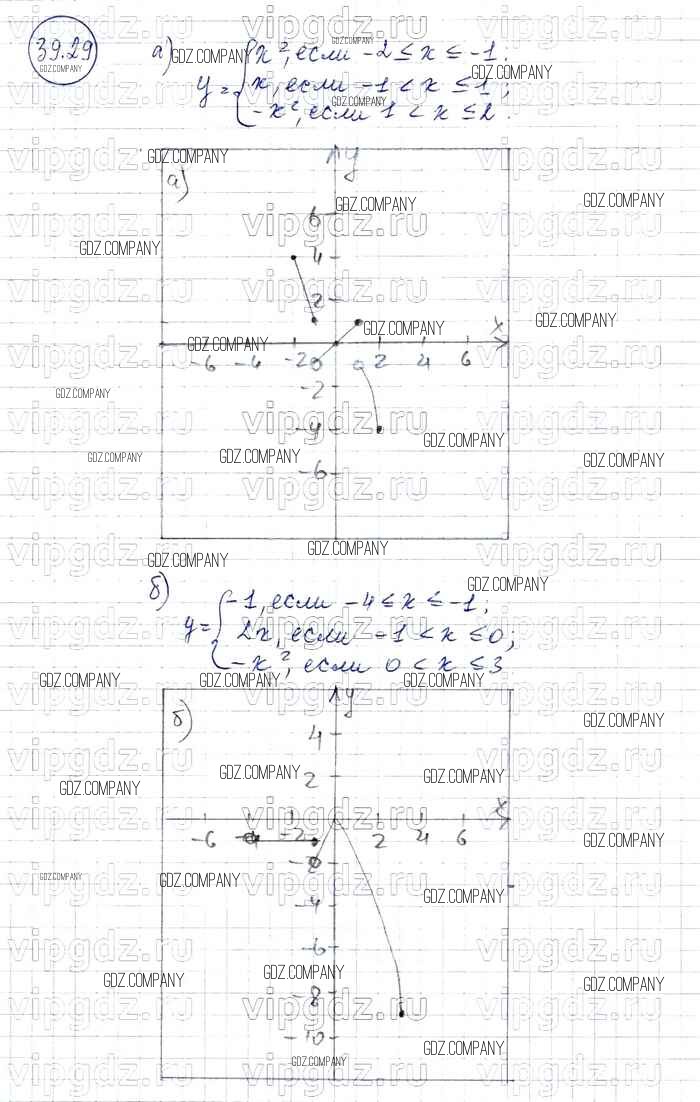 39.29
а) y = { x², если -2 ≤ x ≤ -1;
x, если -1 < x ≤ 1;
-x², если 1 < x ≤ 2.
а)
y
6
4
2
x
-6 -4 -2 2 4 6
-2
-4
-6
б) y = { -1, если -4 ≤ x ≤ -1;
2x, если -1 < x ≤ 0;
-x², если 0 < x ≤ 3
б)
y
4
2
x
-6 -4 -2 2 4 6
-2
-4
-6
-8
-10
GDZ.COMPANY
vipgdz.ru